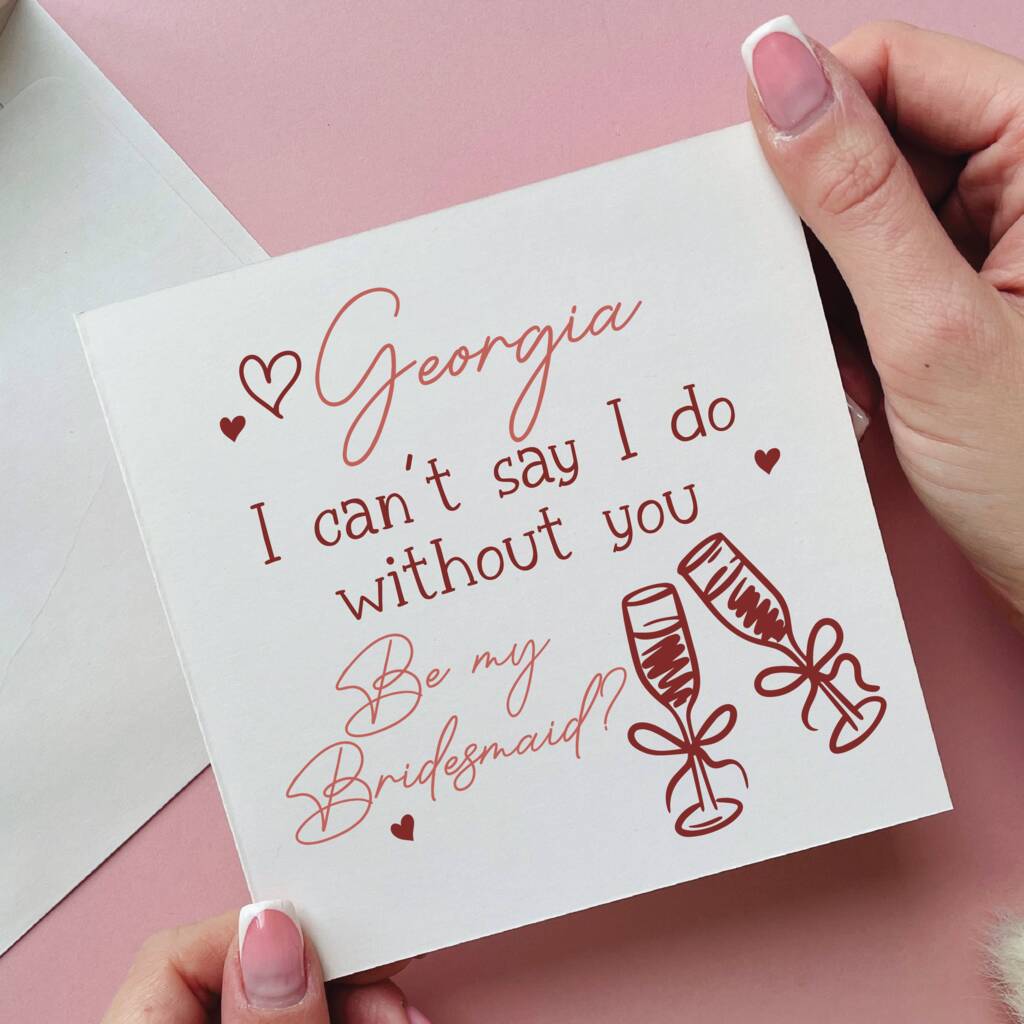 Georgia
I can't say I do
without you
Be my
Bridesmaid?